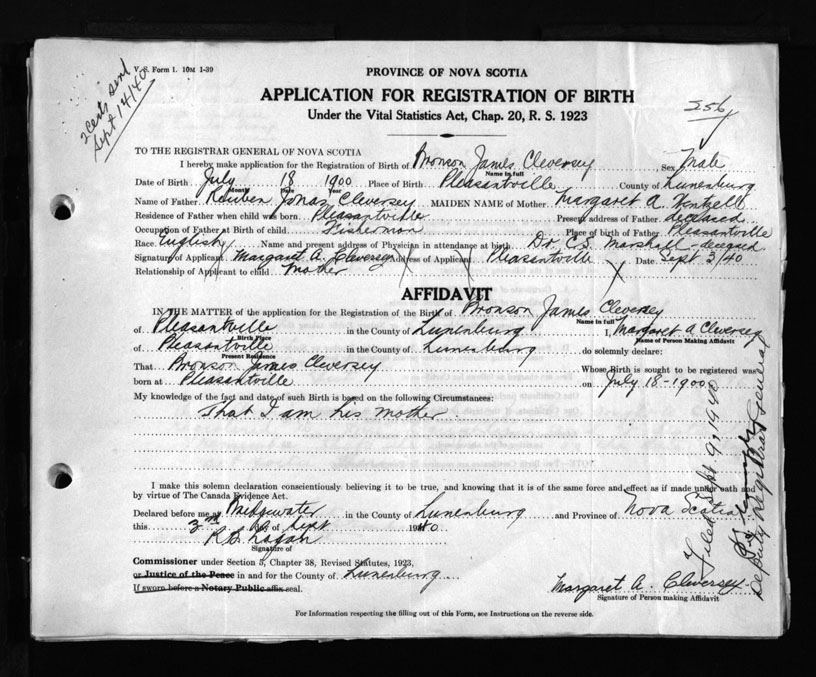 V. S. Form 1. 10M 1-39
2 Certs send
Sept 14/40
PROVINCE OF NOVA SCOTIA
APPLICATION FOR REGISTRATION OF BIRTH
Under the Vital Statistics Act, Chap. 20, R. S. 1923
256
TO THE REGISTRAR GENERAL OF NOVA SCOTIA
I hereby make application for the Registration of Birth of Bronson James Cleversey, Sex Male
Name in full
Date of Birth July 18 1900 Place of Birth Pleasantville County of Lunenburg
Month Date Year
Name of Father Reuben Jonas Cleversey MAIDEN NAME of Mother Margaret A. Wentzell
Residence of Father when child was born Pleasantville Present address of Father deceased
Occupation of Father at Birth of child Fisherman Place of birth of Father Pleasantville
Race English Name and present address of Physician in attendance at birth Dr. C.S. Marshall - deceased
Signature of Applicant Margaret A. Cleversey Address of Applicant Pleasantville Date Sept 3/40
Relationship of Applicant to child Mother
AFFIDAVIT
IN THE MATTER of the application of the Registration of the Birth of Bronson James Cleversey
Name in full
of Pleasantville in the County of Lunenburg I, Margaret A Cleversey
Birth Place Name of Person Making Affidavit
of Pleasantville in the County of Lunenburg do solemnly declare:
Present Residence
That Bronson James Cleversey Whose Birth is sought to be registered was
born at Pleasantville on July 18 - 1900
My knowledge of the fact and date of such Birth is based on the following Circumstances:
That I am his mother
I make this solemn declaration conscientiously believing it to be true, and knowing that it is of the same force and effect as if made under oath and
by virtue of The Canada Evidence Act.
Declared before me at Bridgewater in the County of Lunenburg and Province of Nova Scotia
this 3rd day of Sept 1940
R.B. Logan
Signature of
Commissioner under Section 5, Chapter 38, Revised Statutes, 1923,
or Justice of the Peace in and for the County of Lunenburg
If sworn before a Notary Public affix seal.
Margaret A. Cleversey
Signature of Person making Affidavit
For Information respecting the filling out of this Form, see Instructions on the reverse side.
Filed Sept 9, 1940
Deputy Registrar General